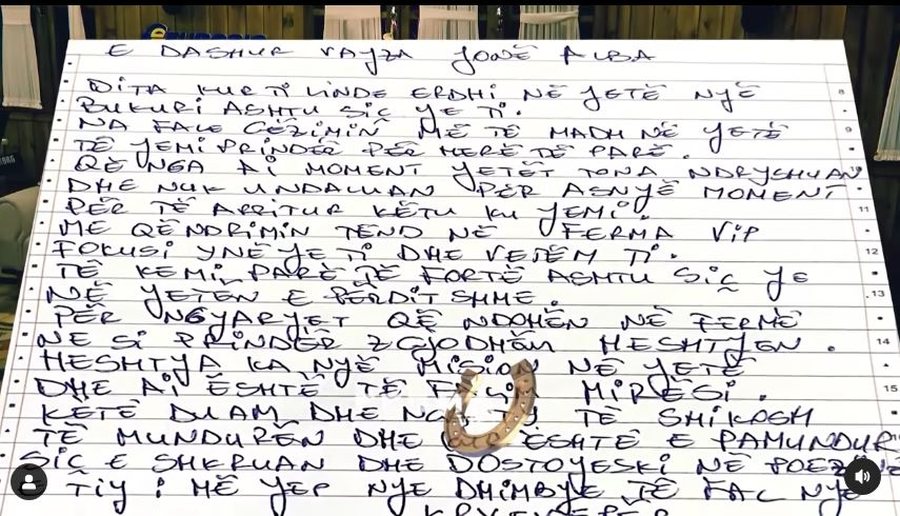 E DASHUR VAYZA JONË ALBA
DITA KUR TI LINDE ERDHI NË JETË NYË
BUKURI ASHTU SIÇ YE TI.
NA FALE GËZIMIN MË TË MADH NË YETË
TË YEMI PRINDËR PËR HERË TË PARË.
QË NGA AI MOMENT YETËT TONA NDRYSHUAN
DHE NUK UNDALUAN PËR ASNYË MOMENT
PËR TË ARRITUR KËTU KU YEMI.
ME QËNDRIMIN TËND NË FERMA VIP
FOKUSI YNË YE TI DHE VETËM TI.
TË KEMI PARË TË FORTË ASHTU SIÇ YE
NË YETËN E PËRDITSHME.
PËR NGYARYET QË NDOHËN NË FERMË
NE SI PRINDËR ZGJODHËM HESHTYEN.
HESHTYA KA NYË MISION NË YETË
DHE AI ËSHTË TË MIRËSI.
KËTË DUAM DHE NGA TY TË SHIKOSH
TË MUNDURËN DHE ËSHTË E PAMUNDUR
SIÇ E SHKRUAN DHE DOSTOYESKI NË
TIY : MË YEP NYE DHIMBYE TË FAL NYË
8
9
10
11
12
13
14
15